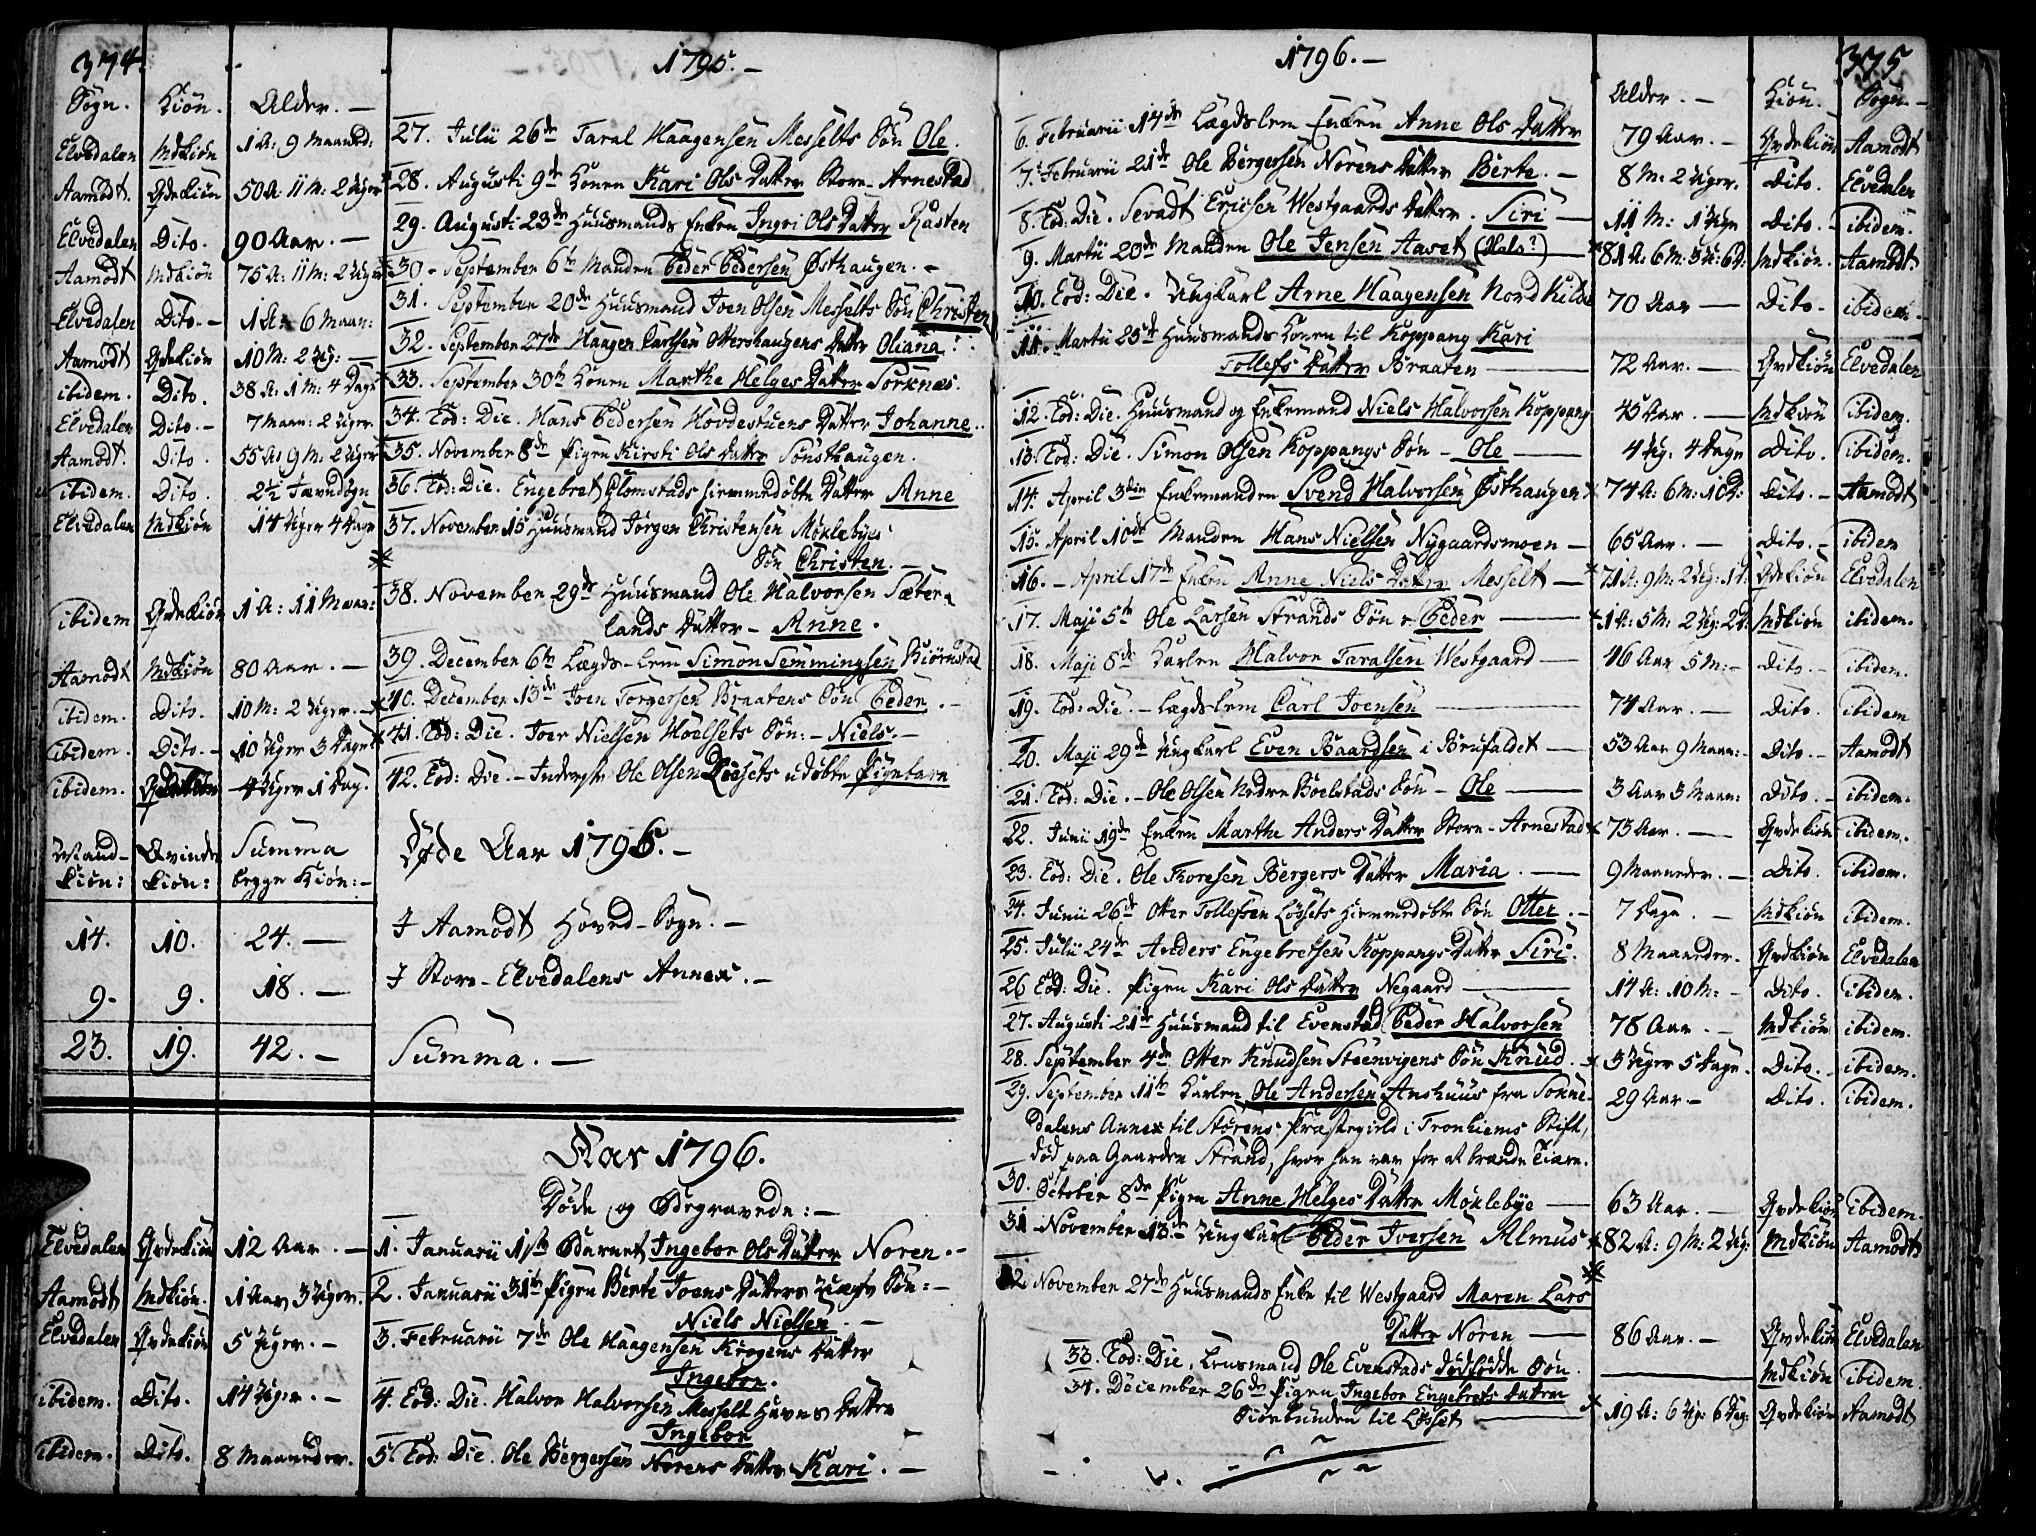 374.
1795.
Sogn. Kiön. Alder.
Elvedalen Mdkiön 1 A: 9 Maaned: 27. Julii 26de Taral Haagensen Messelts Sön Ole.
Aamodt. Qvdekiön 50 A: 11 M: 2 Uger 28. Augusti 9de Konen Kari Ols Datter Store-Arnestad
Elvedalen Dito. 90 Aar. 29. Augusti 23de Huusmands Enken Ingri Ols Datter Rasten
Aamodt Mdkiön 75 A: 11 M: 2 Uger 30. September 6te Manden Peder Pedersen Östhaugen.
Elvedalen Dito. 1 A: 6 Maan: 31. September 20de Huusmand Joen Olsen Messelts Sön Christen
Aamodt Qvdekiön 10 M: 2 Ug: 32. September 27de Haagen Carlsen Ottershaugens Datter Oliana
ibidem. Dito. 38 A: 1 M: 4 Dage 33. September 30te Konen Marthe Helges Datter Sorknes.
Elvedalen Dito. 7 Maan: 2 Uger. 34. Eod: Die. Hans Pedersen Hovdestuens Datter Johanne.
Aamodt. Dito. 55 A: 9 M: 2 Uger 35. November 8de Pigen Kirsti Ols Datter Sönsthaugen.
ibidem. Dito. 2½ Jævndögn 36. Eod: Die. Engebret Glomstads hiemmedöbte Datter Anne
Elvedalen Mdkiön 14 Uger 4 Dage 37. November 15 Huusmand Jörgen Christensen Möklebyes
Sön Christen.
ibidem Qvdekiön 1 A: 11 Maan: 38. November 29de Huusmand Ole Halvorsen Sæter-
lands Datter - Anne.
Aamodt Mdkiön 80 Aar. 39. December 6te Lægds-Lem Simon Semmingsen Biörnstad
ibidem. Dito. 10 M: 2 Uger. 40. December 13de Joen Torgersen Braatens Sön Peder.
ibidem. Dito. 10 Uger 3 Dage 41. Eod: Die. Joer Nielsen Hoelsets Sön: - Niels.
ibidem. Qvdekiön 4 Uger 1 Dag. 42. Eod: Die. Inderste Ole Olsen Löesets udöbte Pigebarn
Mand- Qvinde Summa Døde Aar 1795.
kiön: kiön: begge Kiön:
14. 10. 24. I Aamodt Hoved-Sogn.
9. 9. 18. I Store-Elvedalens Annex.
23. 19. 42. Summa.
Aar 1796.
Döde og Begravede:
Elvedalen Qvdekiön 12 Aar. 1. Januarii 1ste Barnet Ingebor Ols Datter Noren.
Aamodt Mdkiön. 1 Aar 3 Uger. 2. Januarii 31te Pigen Berte Joens Datters uægte Sön:
Niels Nielsen.
Elvedalen Qvdekiön 5 Uger. 3. Februarii 7de Ole Haagensen Krogens Datter
Ingebor.
ibidem. Dito. 14 Uger. 4. Eod: Die. Halvor Halvorsen Messelt Havns Datter
Ingebor
ibidem. Dito. 8 Maaneder. 5. Eod: Die. Ole Bergersen Norens Datter Kari.
1796.
375
Alder. Kiön. Sogn.
6. Februarii 14de Lægdslem Enken Anne Ols Datter 79 Aar. Qvdekiön Aamodt
7. Februarii 21de Ole Bergersen Norens Datter Berte. 8 M: 2 Uger. Dito. Elvedalen
8. Eod: Die. Sevadt Ericsen Westgaards Datter. Siri 11 M: 1 Uge Dito. ibidem.
9. Martii 20de Manden Ole Jensen Aaset (Hals?) 81 A: 6 M: 3 U: 6 D: Mdkiön. Aamodt.
10. Eod: Die. Ungkarl Arne Haagensen Nord Kilde 70 Aar Dito. ibidem.
11. Martii 25de Huusmands Konen til Koppang Kari
Tollefs Datter Braaten 72 Aar. Qvdkiön Elvedalen
12. Eod: Die. Huusmand og Enkemand Niels Halvorsen Koppang 45 Aar. Mdkiön ibidem.
13. Eod: Die. Simon Olsen Koppangs Sön - Ole 4 Ug: 4 Dage Dito. ibidem.
14. April 3die Enkemanden Svend Halvorsen Östhaugen 74 A: 6 M: 10 D: Dito. Aamodt
15. April 10de Manden Hans Nielsen Nygaardsmoen 65 Aar. Dito. ibidem
16. April 17de Enken Anne Niels Datter Messelt 71 A: 9 M: 2 Ug: 1 D. Qvdkiön Elvedalen
17. Maji 5te Ole Larsen Strands Sön - Peder 1 A: 5 M: 2 Ug: 2 D: Mdkiön ibidem.
18. Maji 8de Karlen Halvor Taralsen Westgaard 46 Aar 5 M: Dito. ibidem.
19. Eod: Die. Lægdslem Carl Joensen 74 Aar. Dito. ibidem
20. Maji 29de Ungkarl Even Baardsen i Brufaldet 53 Aar 9 Maan: Dito. Aamodt
21. Eod: Die. Ole Olsen Nedre Boelstads Sön - Ole 3 Aar 3 Maan: Dito. ibidem.
22. Junii 19de Enken Marthe Anders Datter Store-Arnestad 73 Aar. Qvdekiön ibidem.
23. Eod: Die. Ole Thoresen Bergers Datter Maria. 9 Maaneder. Dito. ibidem.
24. Junii 26de Otter Tollefsen Lössets hiemmedöbte Sön Otter. 7 Dage. Mdkiön ibidem.
25. Julii 24de Anders Engebretsen Koppangs Datter Siri. 8 Maaneder. Qvdkiön Elvedalen
26 Eod: Die. Pigen Kari Ols Datter Negaard 14 A: 10 M: Dito. ibidem.
27. Augusti 21de Huusmand til Evenstad Peder Halvorsen 78 Aar. Mdkiön ibidem.
28. September 4de Otter Knudsen Steenvigens Sön Knud. 3 Uger 5 Dage. Dito. ibidem.
29. September 11te Karlen Ole Andersen Anshuus fra Sonne- 29 Aar Dito. ibidem.
dalens Annex til Störens Præstegield i Tronhiems Stift,
död paa Gaarden Strand, hvor han var for at brænde Tiære.
30. October 8de Pigen Anne Helges Datter Möklebye 63 Aar. Qvdekiön ibidem.
31 November 13de Ungkarl Peder Iversen Almus 82 A: 9 M: 2 Ug: Mdkiön Aamodt
32 November 27de Huusmands Enke til Westgaard Maren Lars
Datter Noren 86 Aar. Qvdekiön Elvedalen
33. Eod: Die, Lensmand Ole Evenstads dödfödde Sön. Mdkiön ibidem.
34. December 26de Pigen Ingebor Engebrets Datter
til Lösset 19 A: 6 Ug: 6 Dag: Qvdekiön Aamodt